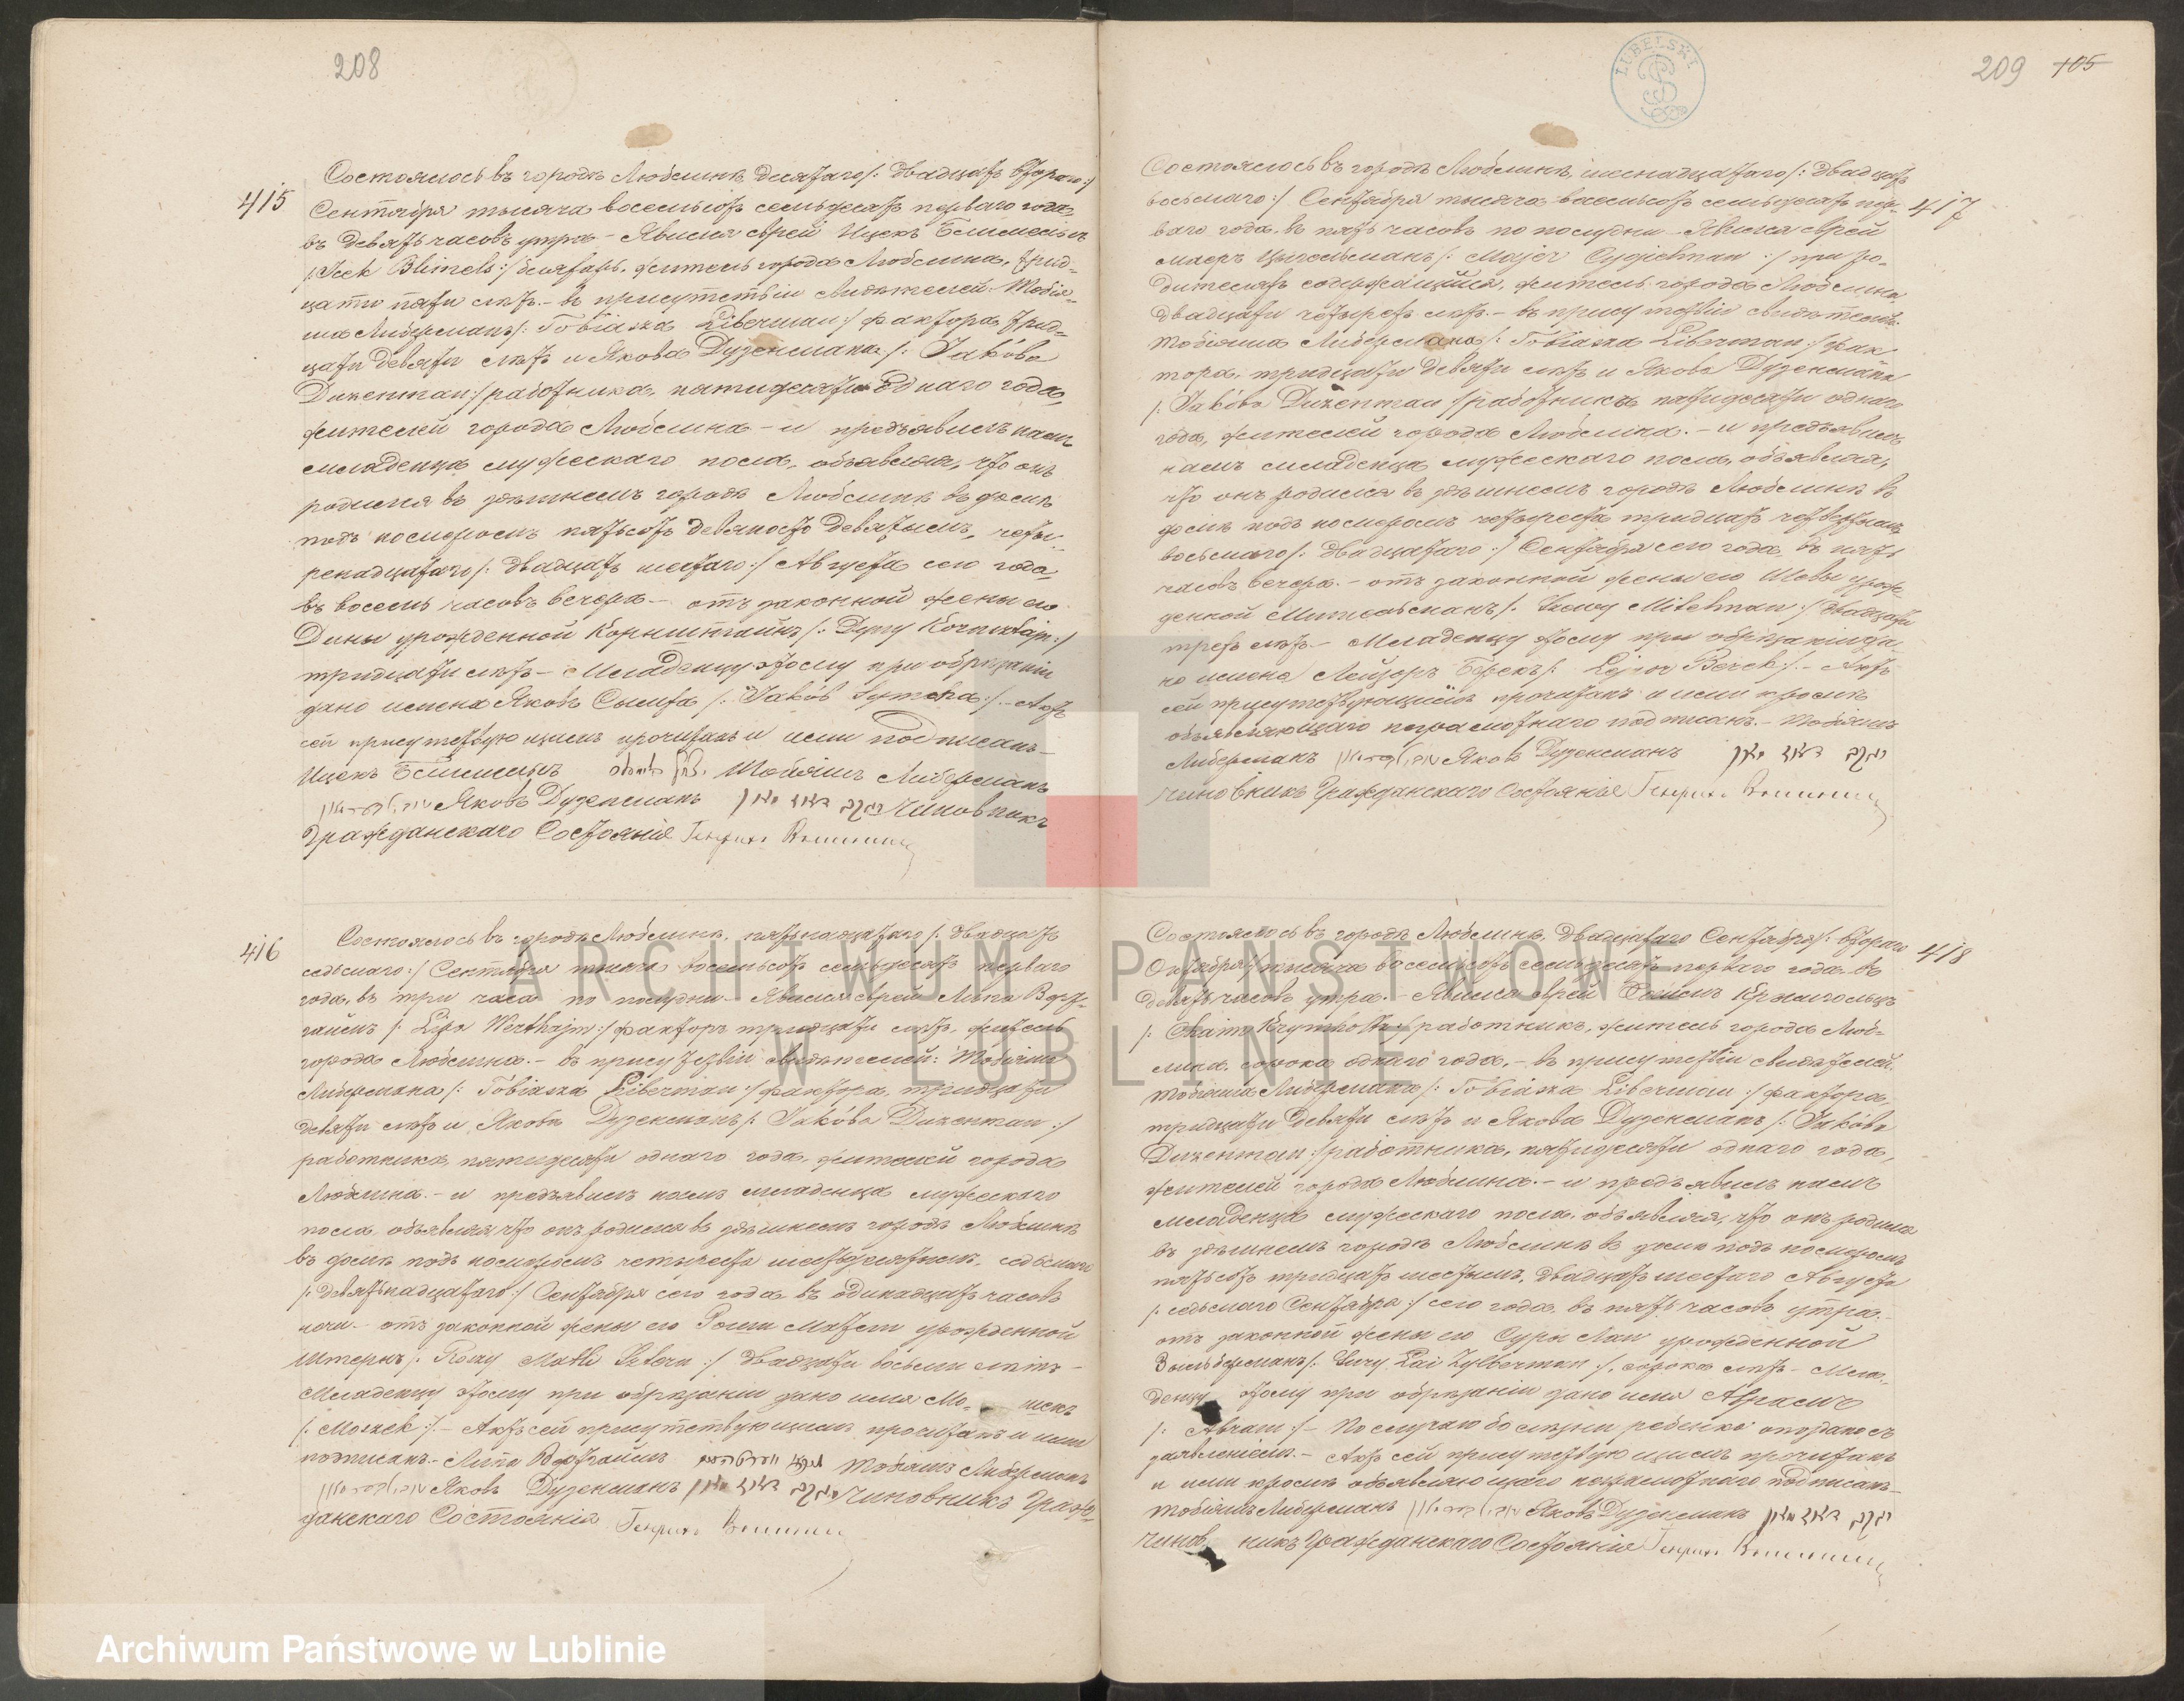 208
415
Состоялось въ городѣ Люблинѣ, десятаго /: двадцать втораго :/
Сентября тысяча восемьсотъ семьдесятъ перваго года,
въ девять часовъ утра – Явился еврей Ицекъ Блимельсъ
/: Icek Blimels :/ житель города Люблина, трид-
цати пяти лѣтъ. – въ присутствіи свидѣтелей: Тобія-
ша Либермана /: Tobiasza Liberman :/ фактора, трид-
цати девяти лѣтъ и Якова Дузенмана /: Jakóba
Duzenman :/ работника, пятидесяти одного года,
жителей города Люблина – и предъявилъ намъ
младенца мужескаго пола, объявляя, что онъ
родился въ здѣшнемъ городѣ Люблинѣ въ домѣ
подъ номеромъ пятьсотъ девяносто девятымъ, четы-
ренадцатаго /: двадцать шестаго :/ Августа сего года
въ восемь часовъ вечера – отъ законной жены его
Дины урожденной Корнштайнъ /: Dyny Kornsztajn :/
тридцати лѣтъ – Младенцу этому при обрѣзаніи
дано имена Яковъ Сымха /: Jakób Symcha :/ – Актъ
сей присутствующимъ прочитанъ и ими подписанъ –
Ицекъ Блимельсъ Тобіяшъ Либерманъ
Яковъ Дузенманъ Чиновникъ
Гражданскаго Состоянія
416
Состоялось въ городѣ Люблинѣ, пятьнадцатаго /: двадцать
седьмаго :/ Сентября тысяча восемьсотъ семьдесятъ перваго
года, въ три часа по полудни – Явился еврей Липа Верт-
гаймъ /: Lipa Werthajm :/ факторъ тридцати лѣтъ, житель
города Люблина. – въ присутствіи свидѣтелей: Тобіяша
Либермана /: Tobiasza Liberman :/ фактора, тридцати
девяти лѣтъ и Якова Дузенманъ /: Jakóba Duzenman :/
работника, пятидесяти одного года, жителей города
Люблина. – и предъявилъ намъ младенца мужескаго
пола, объявляя, что онъ родился въ здѣшнемъ городѣ Люблинѣ
въ домѣ подъ номеромъ четыреста шестьдесятымъ, седьмаго
/: девятьнадцатаго :/ Сентября сего года въ одинадцать часовъ
ночи – отъ законной жены его Ройзи Матли урожденной
Штернъ /: Rojzy Matli Sztern :/ двадцати восьми лѣтъ –
Младенцу этому при обрѣзаніи дано имя Мо- шекъ
/: Moszek :/ – Актъ сей присутствующимъ прочитанъ и ими
подписанъ – Липа Вертгаймъ Тобіяшъ Либерманъ
Яковъ Дузенманъ Чиновникъ Граж-
данскаго Состоянія
LUBELSKI
209 105
417
Состоялось въ городѣ Люблинѣ, шестнадцатаго /: двадцать
восьмаго :/ Сентября тысяча восемьсотъ семьдесятъ пер-
ваго года, въ пять часовъ по полудни – Явился еврей
Маеръ Цыгельманъ /: Majer Cygielman :/ при ро-
дителяхъ содержащійся, житель города Люблина
двадцати четырехъ лѣтъ. – въ присутствіи свидѣтелей:
Тобіяша Либермана /: Tobiasza Liberman :/ фак-
тора, тридцати девяти лѣтъ и Якова Дузенмана
/: Jakóba Duzenman :/ работника пятидесяти одного
года, жителей города Люблина. – и предъявилъ
намъ младенца мужескаго пола, объявляя,
что онъ родился въ здѣшнемъ городѣ Люблинѣ въ
домѣ подъ номеромъ четыреста тридцать четвертымъ,
восьмаго /: двадцатаго :/ Сентября сего года въ пять
часовъ вечера. – отъ законной жены его Шевы урож-
денной Мительманъ /: Szewy Mitelman :/ двадцати
трехъ лѣтъ. – Младенцу этому при обрѣзаніи да-
но имена Лейзоръ Берекъ /: Lejzor Berek :/. – Актъ
сей присутствующимъ прочитанъ и ими кромѣ
объявляющаго неграмотнаго подписанъ. – Тобіяшъ
Либерманъ Яковъ Дузенманъ
Чиновникъ Гражданскаго Состоянія
418
Состоялось въ городѣ Люблинѣ, двадцатаго Сентября /: втораго
Октября :/ тысяча восемьсотъ семьдесятъ перваго года въ
девять часовъ утра. – Явился еврей Хаимъ Крымгольцъ
/: Chaim Krymholtz :/ работникъ, житель города Люб-
лина, сорока одного года, – въ присутствіи свидѣтелей:
Тобіяша Либермана /: Tobiasza Liberman :/ фактора,
тридцати девяти лѣтъ и Якова Дузенманъ /: Jakóba
Duzenman :/ работника, пятидесяти одного года,
жителей города Люблина. – и предъявилъ намъ
младенца мужескаго пола, объявляя, что онъ родился
въ здѣшнемъ городѣ Люблинѣ въ домѣ подъ номеромъ
пятьсотъ тридцать шестымъ, двадцать шестаго Августа
/: седьмаго Сентября :/ сего года въ пять часовъ утра. –
отъ законной жены его Суры Лаи урожденной
Зыльберманъ /: Sury Lai Zylberman :/, сорока лѣтъ – Мла-
денцу этому при обрѣзаніи дано имя Абрамъ
/: Abram :/ – По случаю болѣзни ребенка опоздано съ
заявленіемъ. – Актъ сей присутствующимъ прочитанъ
и ими кромѣ объявляющаго неграмотнаго подписанъ –
Тобіяшъ Либерманъ Яковъ Дузенманъ
Чинов- никъ Гражданскаго Состоянія
ARCHIWUM PAŃSTWOWE
W LUBLINIE
Archiwum Państwowe w Lublinie